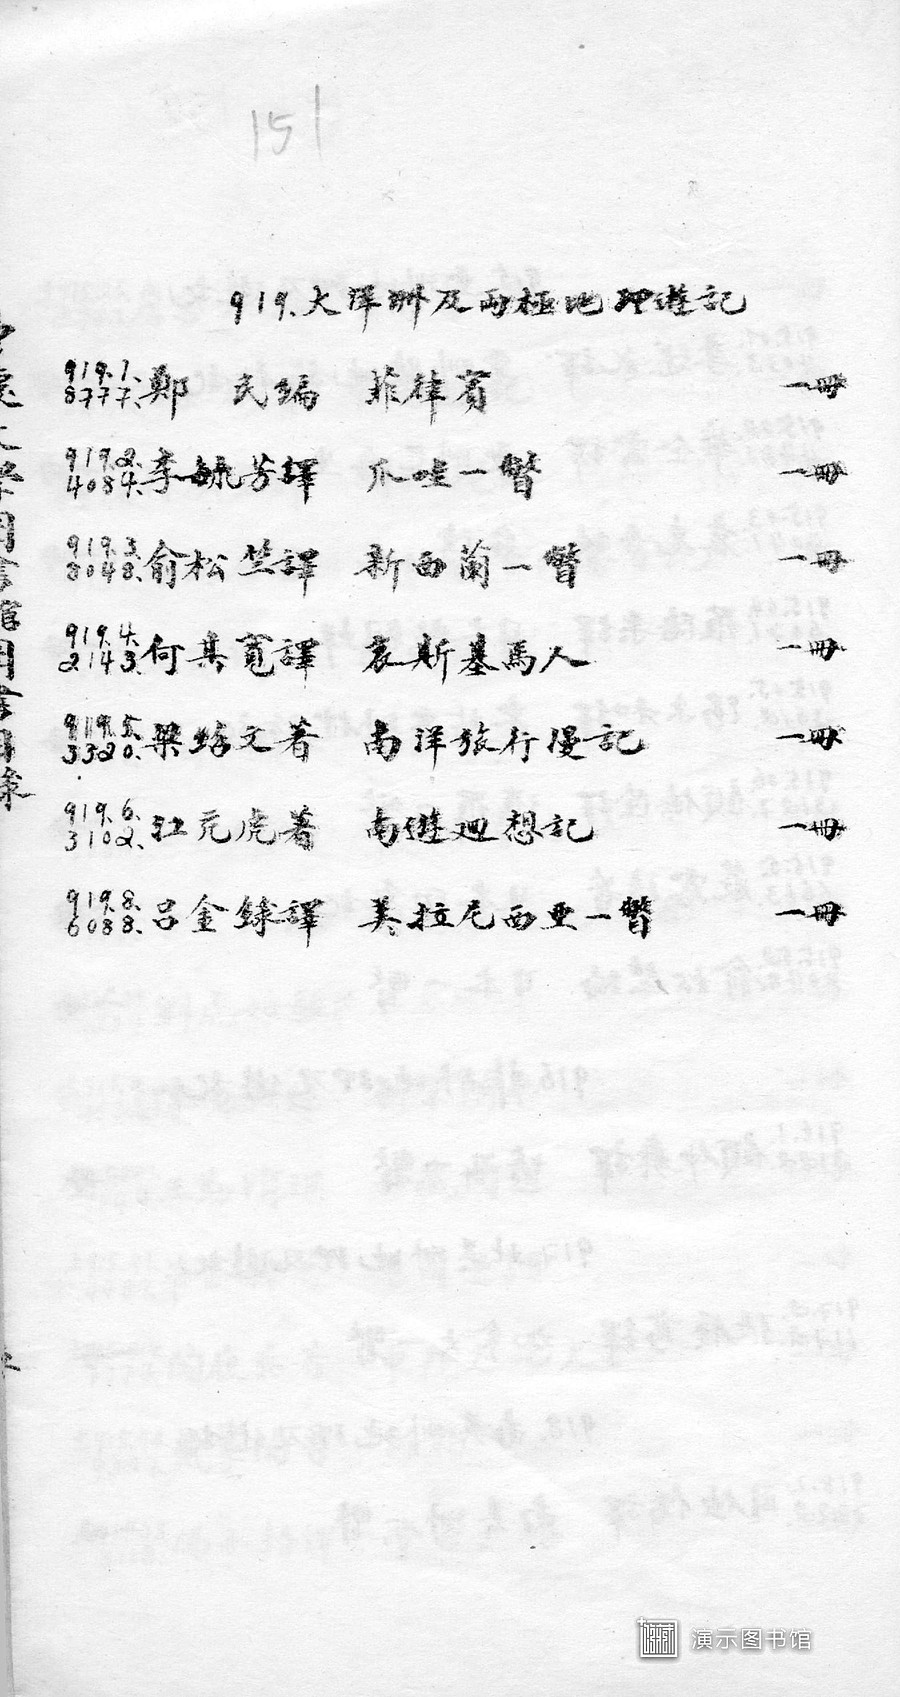 151
919.大洋洲及兩極地理遊記
919.1. 8777. 鄭 民編 菲律賓 一冊
919.2. 4084. 李毓芳譯 爪哇一瞥 一冊
919.3. 8048. 俞松笠譯 新西蘭一瞥 一冊
919.4. 2143. 何其寬譯 哀斯基馬人 一冊
919.5. 3320. 梁紹文著 南洋旅行漫記 一冊
919.6. 3102. 江亢虎著 南遊迴想記 一冊
919.8. 6088. 呂金錄譯 美拉尼西亞一瞥 一冊
大學圖書館圖書目錄
演示图书馆